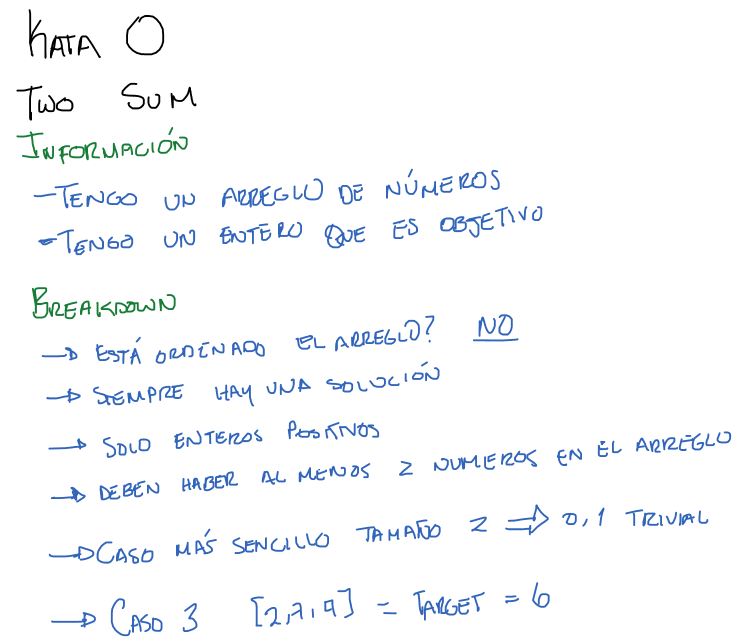 KATA 0
TWO SUM
INFORMACIÓN
-TENGO UN ARREGLO DE NÚMEROS
-TENGO UN ENTERO QUE ES OBJETIVO
BREAKDOWN
→ ESTÁ ORDENADO EL ARREGLO? NO
→ SIEMPRE HAY UNA SOLUCIÓN
→ SOLO ENTEROS POSITIVOS
→ DEBEN HABER AL MENOS 2 NUMEROS EN EL ARREGLO
→ CASO MÁS SENCILLO TAMAÑO 2 ⇒ 0,1 TRIVIAL
→ CASO 3 [2,7,9] = TARGET = 6